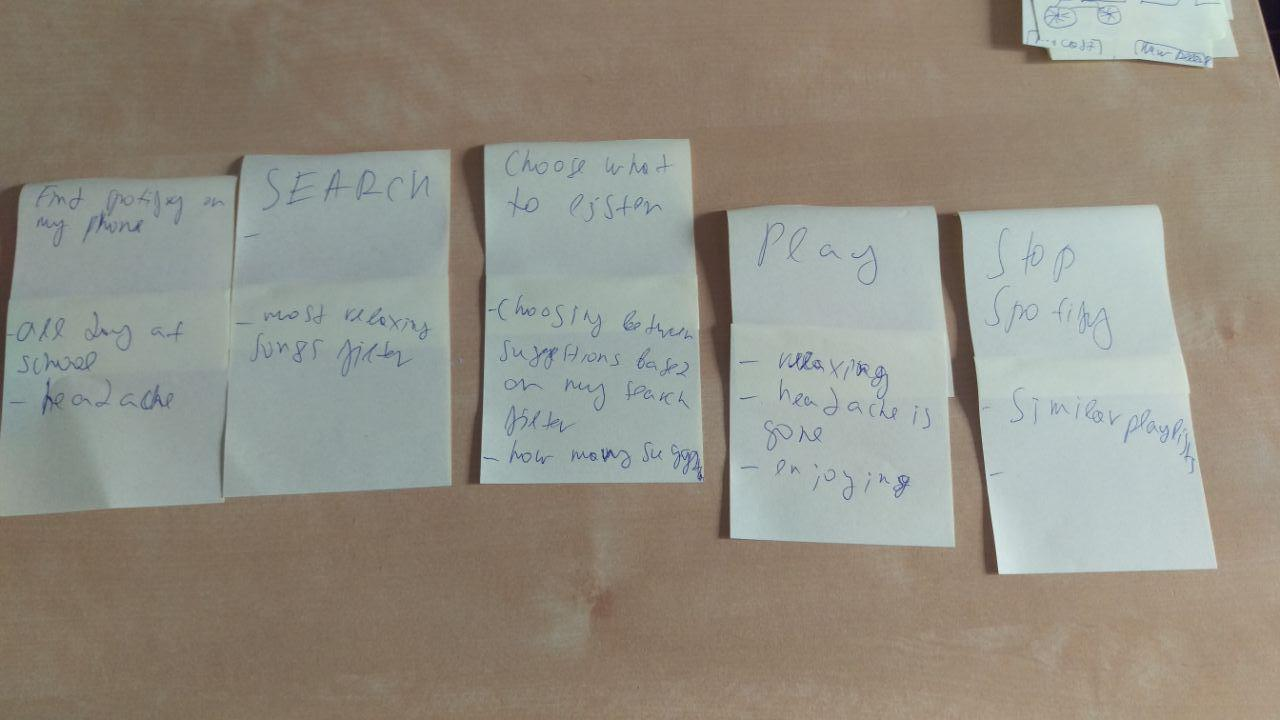 Find spotify on
my phone
- all day at
school
- headache
SEARCH
-
- most relaxing
songs filter
Choose what
to listen
- choosing between
suggstions based
on my search
filter
- how many sugg
Play
- relaxing
- headache is
gone
- enjoying
Stop
Spotify
- Similar playlists
-